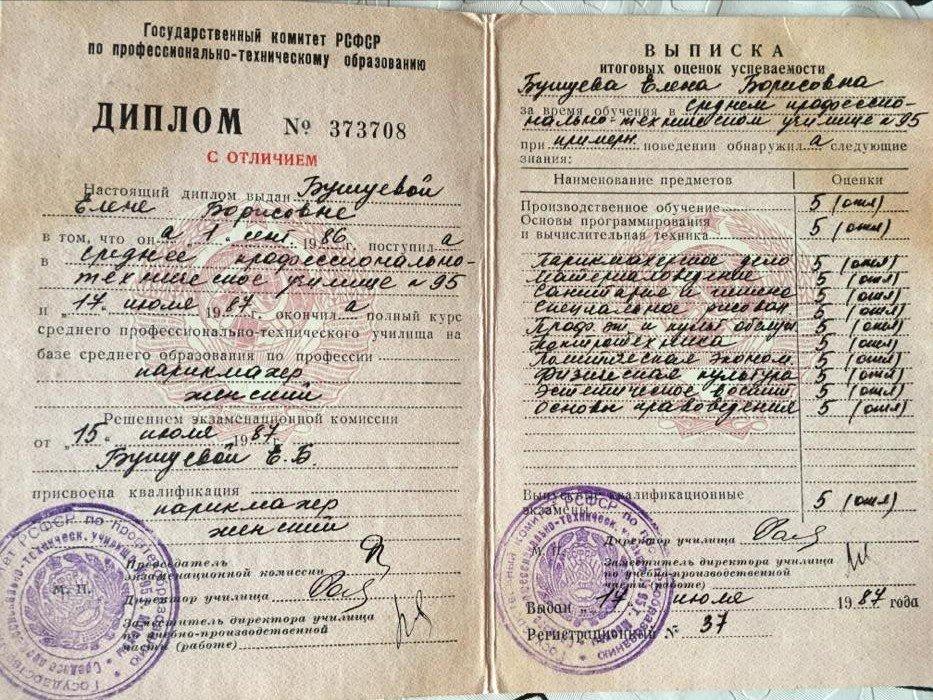 Государственный комитет РСФСР
по профессионально-техническому образованию
ДИПЛОМ № 373708
С ОТЛИЧИЕМ
Настоящий диплом выдан Бушуевой
Елене Борисовне
в том, что он а „1" сент 1986 г. поступил а
в среднее профессионально-
техническое училище №95
и „17" июля 1987 г. окончил а полный курс
среднего профессионально-технического училища на
базе среднего образования по профессии
парикмахер
женский
Решением экзаменационной комиссии
от „15" июля 1987
Бушуевой Е.Б.
присвоена квалификация
парикмахер
женский
Председатель
экзаменационной комиссии
М. П.
Директор училища
Заместитель директора училища
по учебно-производственной
части (работе)
ВЫПИСКА
итоговых оценок успеваемости
Бушуева Елена Борисовна
за время обучения в среднем профессио-
нально-техническом училище №95
при примерн. поведении обнаружил а следующие
знания:
Наименование предметов Оценки
Производственное обучение 5 (отл)
Основы программирования
и вычислительная техника 5 (отл)
Парикмахерское дело 5 (отл)
Материаловедение 5 (отл)
Санитария и гигиена 5 (отл)
Специальное рисован 5 (отл)
Проф. эт. и культ обслуж 5 (отл)
5 (отл)
Политическая эконом 5 (отл)
Физическая культура 5 (отл)
Эстетическое воспит 5 (отл)
Основы правоведения 5 (отл)
Выпускные квалификационные
экзамены 5 (отл)
Директор училища
М. П.
Заместитель директора училища
по учебно-производственной
части (работе)
Выдан „17" июля 1987 года
Регистрационный № 37